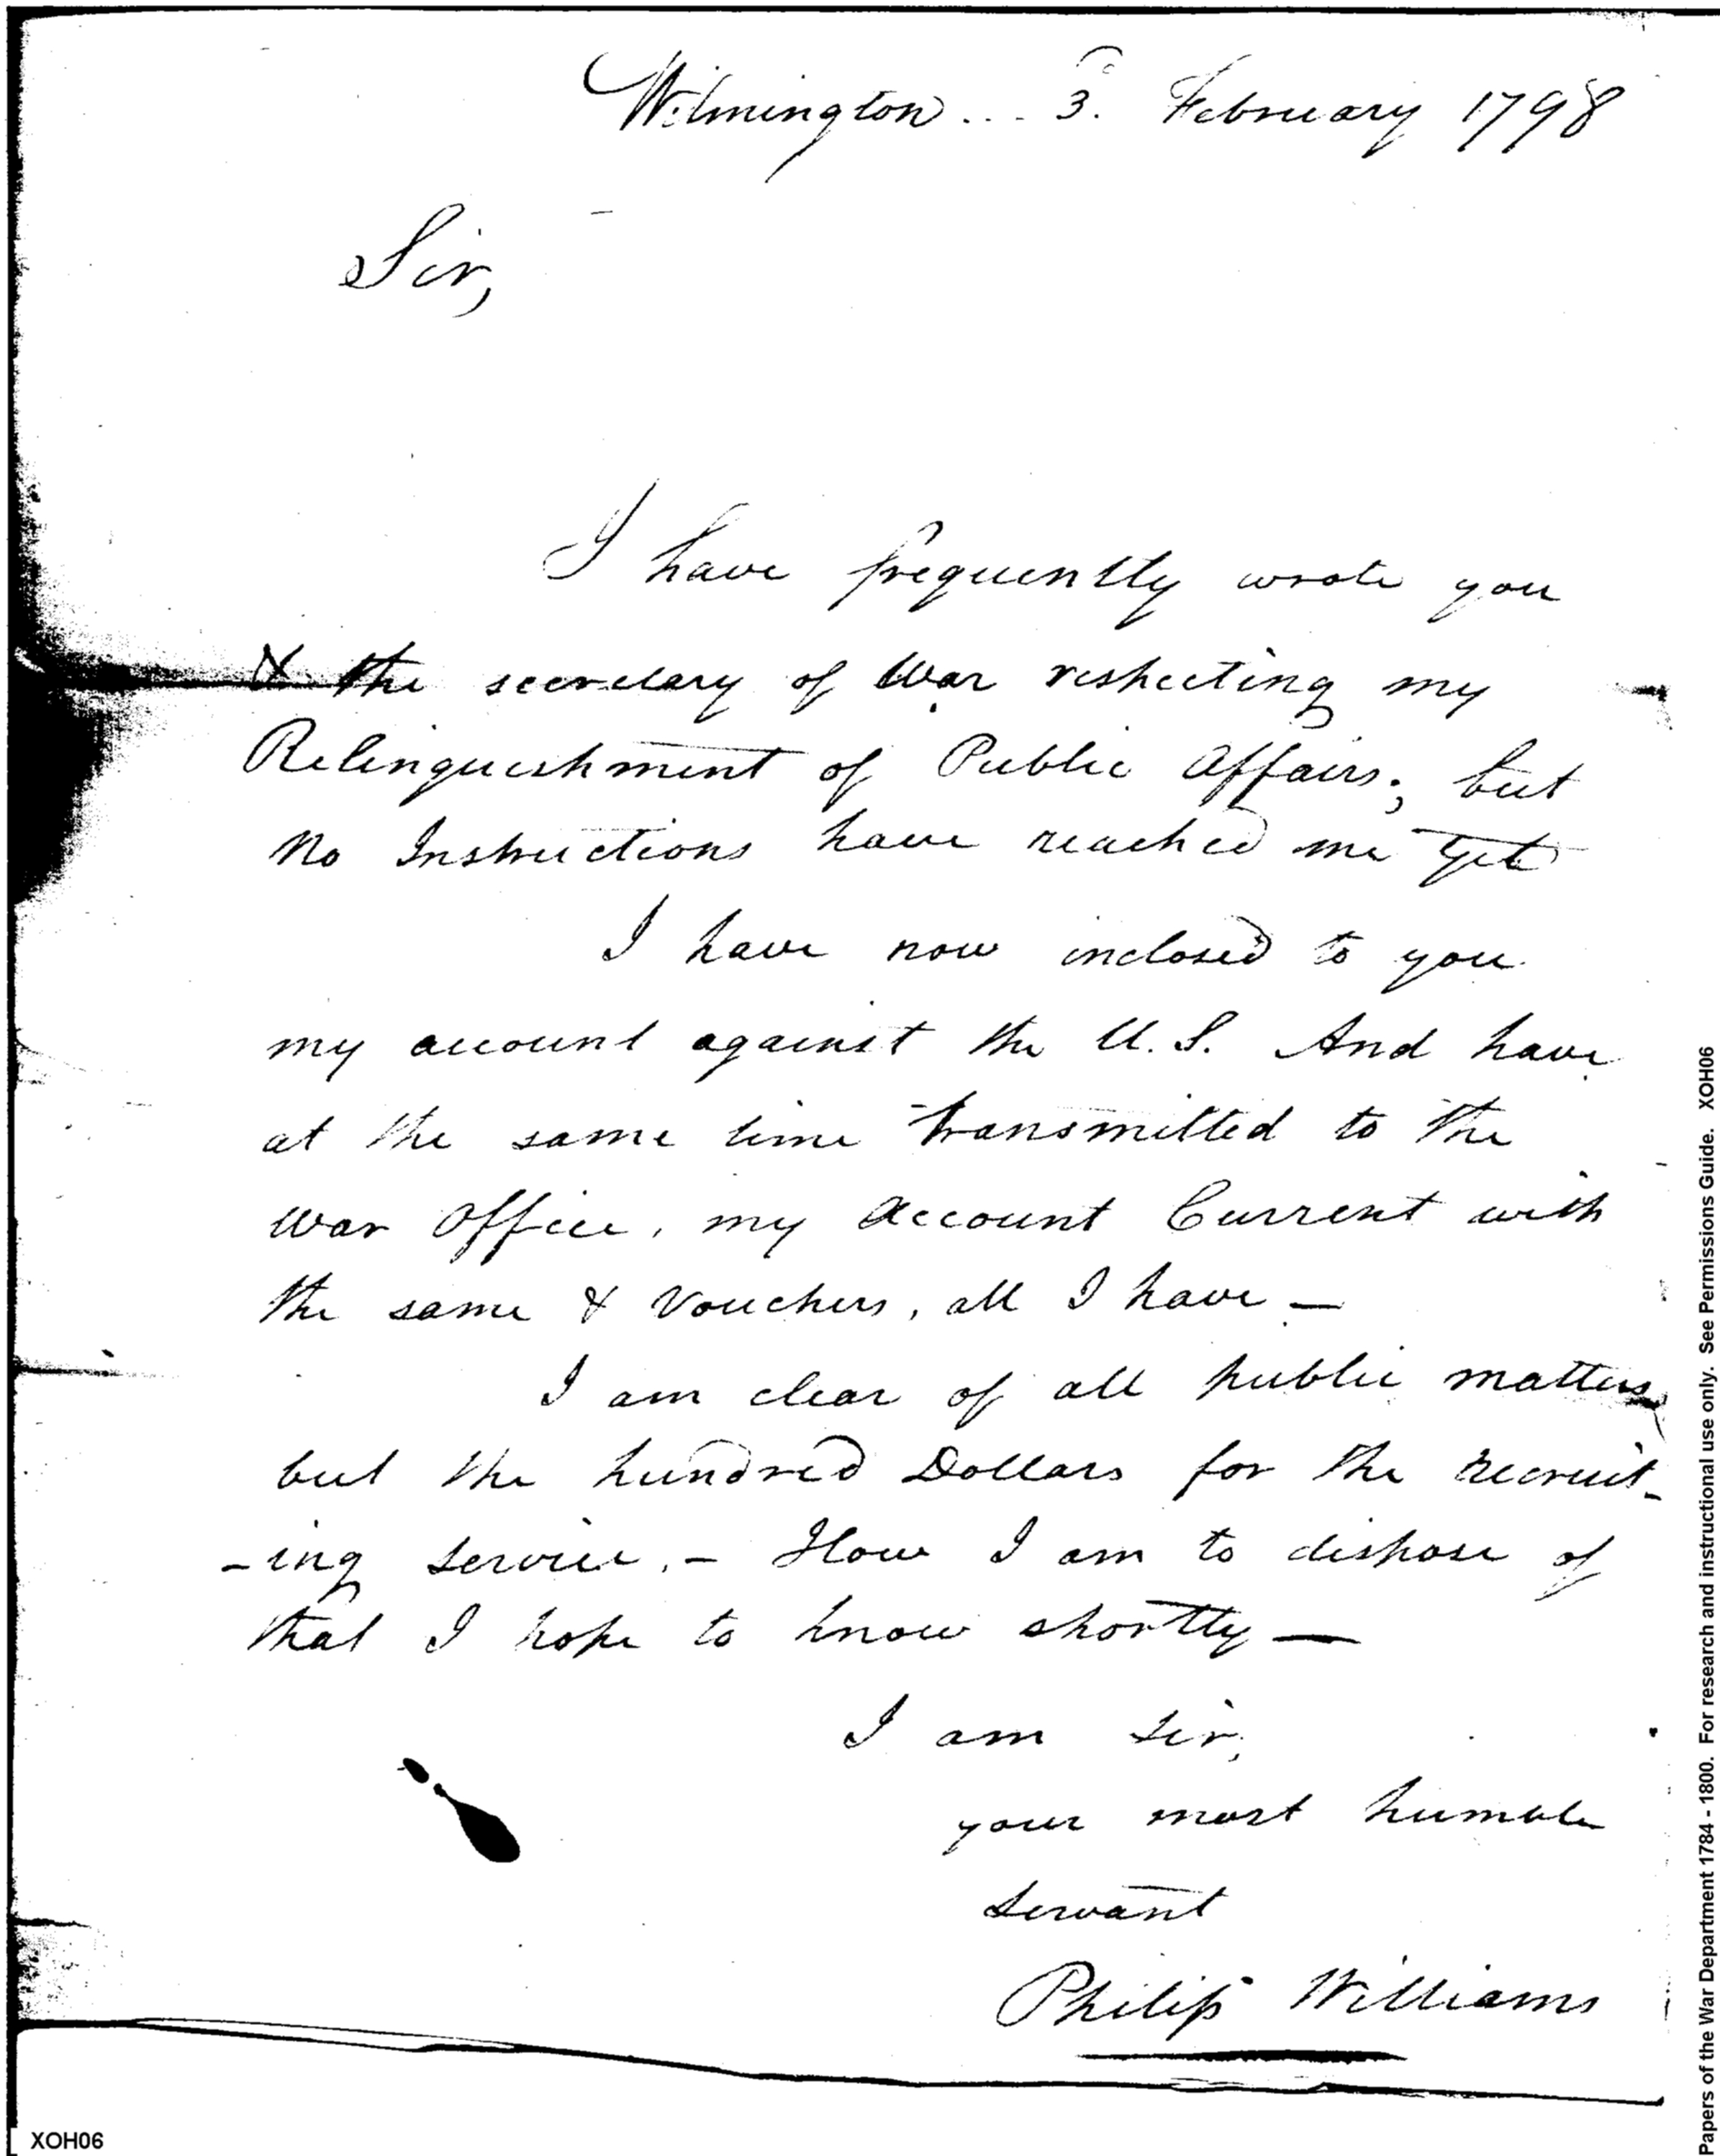 Wilmington... 3d. February 1798
Sir,
I have frequently wrote you
& the secretary of War respecting my
Relinquishment of Public Affairs; but
No Instructions have reached me Yet
I have now inclosed to you
my account against the U.S. And have
at the same time transmitted to the
War Office, my Account Current with
the same & Vouchers, all I have —
I am clear of all public matters
but the hundred Dollars for the recruit-
-ing service. - How I am to dispose of
that I hope to know shortly —
I am Sir,
your most humble
Servant
Philip Williams
XOH06
Papers of the War Department 1784 - 1800. For research and instructional use only. See Permissions Guide. XOH06